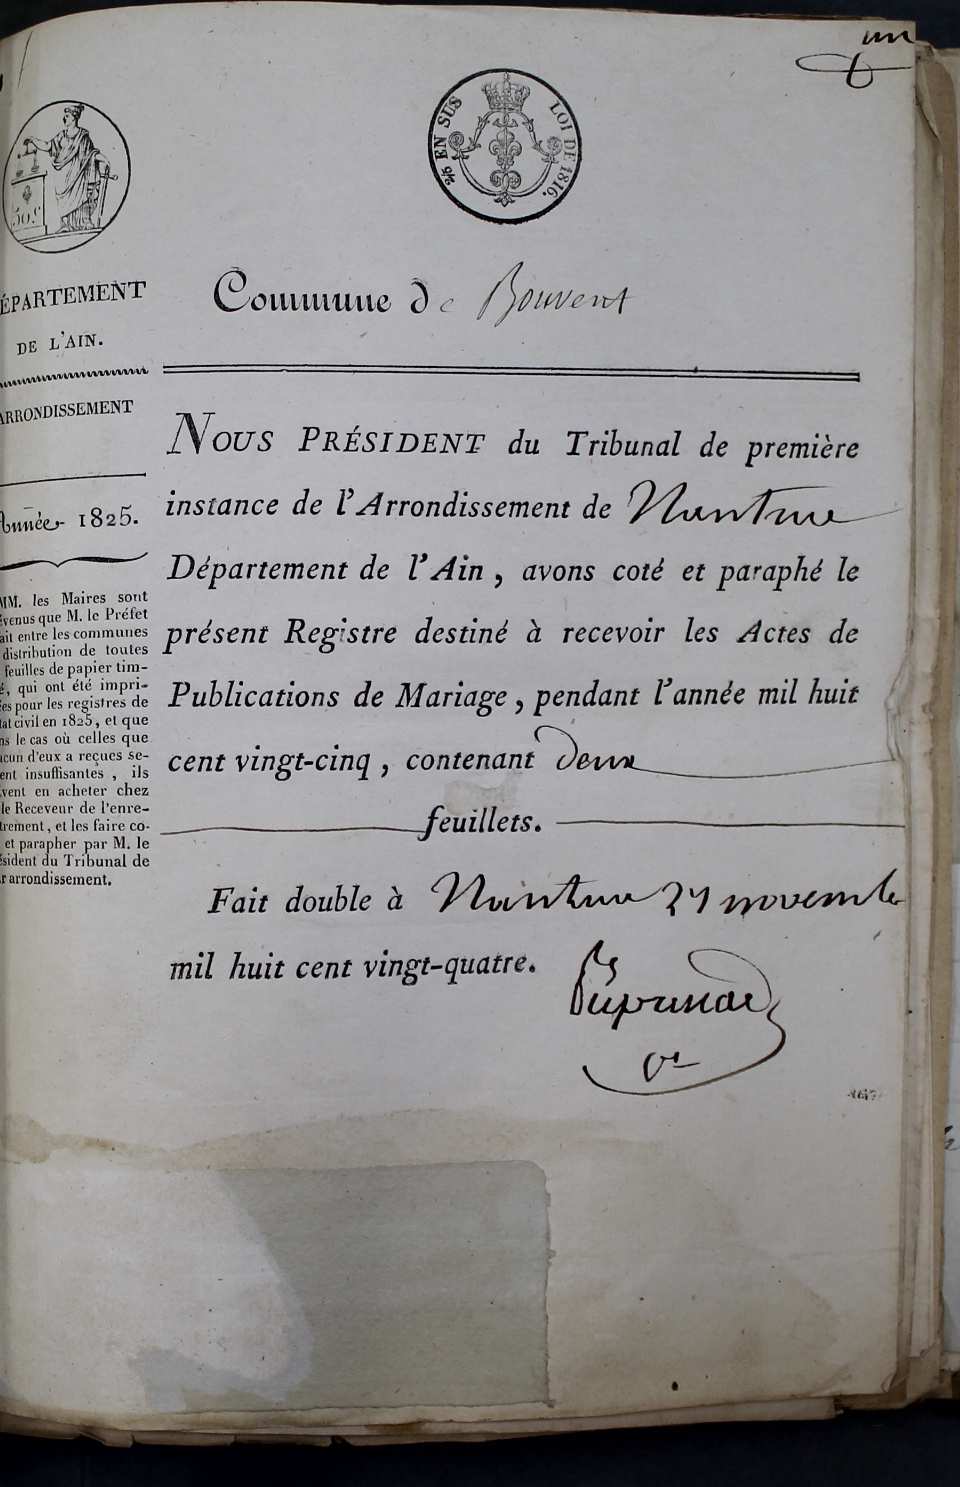 un
2/5 EN SUS LOI DE 1816.
50 c
Commune de Bouvent
ÉPARTEMENT
DE L'AIN.
ARRONDISSEMENT
Année 1825.
MM. les Maires sont
évenus que M. le Préfet
ait entre les communes
distribution de toutes
feuilles de papier tim-
é, qui ont été impri-
es pour les registres de
tat civil en 1825, et que
ns le cas où celles que
acun d'eux a reçues se-
ent insuffisantes, ils
vent en acheter chez
le Receveur de l'enre-
trement, et les faire co-
et parapher par M. le
ésident du Tribunal de
r arrondissement.
NOUS PRÉSIDENT du Tribunal de première
instance de l'Arrondissement de Nantua
Département de l'Ain, avons coté et paraphé le
présent Registre destiné à recevoir les Actes de
Publications de Mariage, pendant l'année mil huit
cent vingt-cinq, contenant deux
feuillets.
Fait double à Nantua 27 novembre
mil huit cent vingt-quatre.